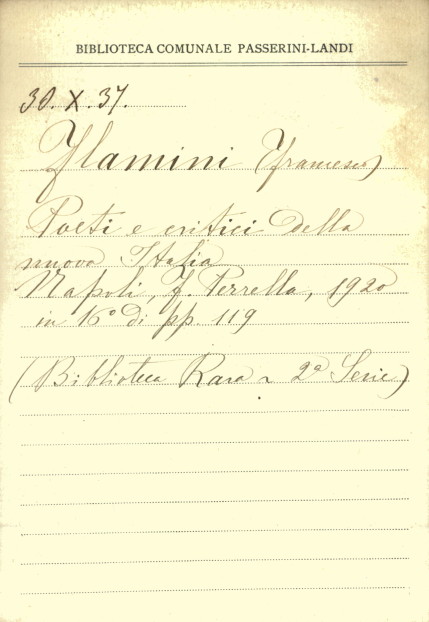 BIBLIOTECA COMUNALE PASSERINI-LANDI
30.X.37.
Flamini (Francesco)
Poeti e critici della
nuova Italia
Napoli, F. Perrella, 1920
in 16° di pp. 119
(Biblioteca Rara ~ 2ª Serie)